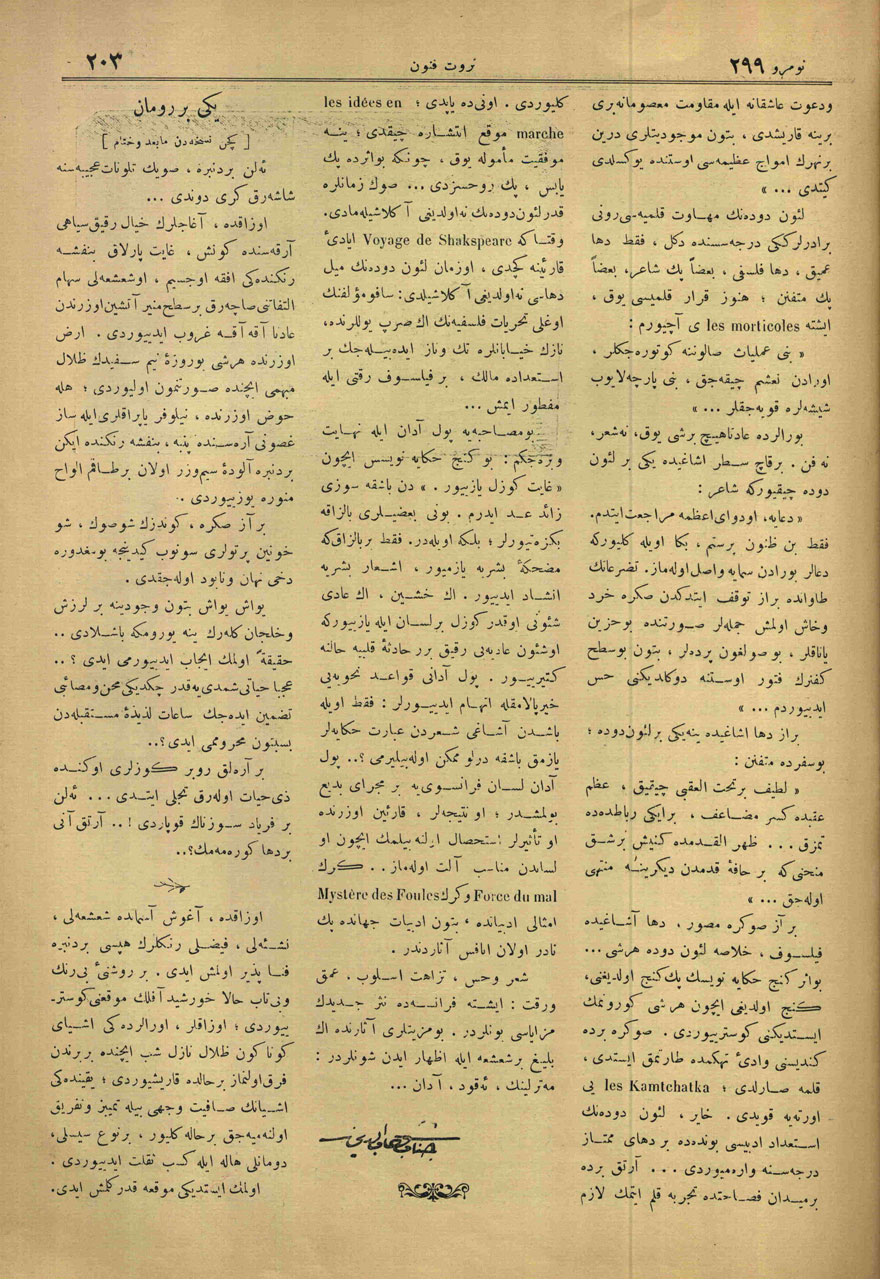 نومرو ٢٩٩
ثروت فنون
٢٠٣
ودعوت عاشقانه ايله مقاومت معصومانه‌برى
برينه قاريشدى ، بتون موجوديتلرى درين
برنهرك امواج عظيمه‌سى اوستنده يوكسلدى
كيتدى ... »
لئون دوده‌نك مهاوت قلميه‌سى‌رونى
برادرلرككى درجه‌سنده دكل ، فقط دها
عميق ، دها فلسفى ، بعضاً پك شاعر، بعضاً
پك متفنن ؛ هنوز قرار قلميسى يوق ،
ايشته les morticoles ى آچيورم :
« بنى عمليات صالوننه كوتوره‌جكلر ،
اورادن نعشم چيقه‌جق ، بنى پارچه‌لايوب
شيشه‌لره قويه‌جقلر ... »
بورالرده عادتاهيچ برشى يوق، نه‌شعر،
نه فن . برقاچ سطر اشاغيده يكى بر لئون
دوده چيقيوركه شاعر :
« دعايه، اودواى‌اعظمه مراجعت‌ايتدم.
فقط بن ظنون پرستم ، بكا اويله كليوركه
دعالر بورادن سمايه واصل‌اوله‌ماز. تضرعاتك
طاوانده براز توقف ايتدكدن صكره خرد
وخاش اولمش جمله‌لر صورتنده بوحزين
ياتاقلر ، بو صولغون پرده‌لر ، بتون بوسطح
كفنرك فتور اوستنه دوكلديكنى حس
ايديبوردم ... »
براز دها اشاغيده ينه‌يكى بر لئون‌دوده ؛
بوسفرده متفنن :
« لطيف برتحت العقبى چيتميق ، عظم
عقبده كسر مضاعف ، برايكى رباطده‌ده
تمزق ... ظهر القدمده كنيش برشق
منحنى‌كه بر حافهٔ قدمدن ديكرينه منتهى
اوله‌جق ... »
بر آز صوكره مصور ، دها آشاغيده
فيلسوف ، خلاصه لئون دوده هرشى ...
بواثر كنج حكايه نويسك پك كنج اولديغنى،
كنج اولديغى ايچون هر شى كورونمك
ايستديكنى كوستريبوردى . صوكره برده
كنديسنى وادئ تهكمده طارتمق ايستدى ،
قلمه صارلدى ؛ les Kamtchatka يى
اورته‌يه قويدى . خاير ، لئون دوده‌نك
استعداد ادبيسى بونده‌ده بر دهاى ممتاز
درجه‌سنه واره‌ميوردى ... آرتق برده
برميدان فصاحتده تجربه قلم ايتمك لازم
كليوردى . اونى‌ده ياپدى ؛ les idées en
marche موقع انتشاره چيقدى ؛ ينه
موفقيت مأموله يوق ، چونكه بواثرده پك
يابس ، پك روحسزدى ... صوك زمانلره
قدر لئون دوده‌نك نه‌اولديغنى آكلاشيله‌مادى.
وقتاكه Voyage de Shakspeare ايادئ
قارئينه كچدى ، اوزمان لئون دوده‌نك ميل
دهاسى نه‌اولديغى آكلاشيلدى: سافومؤلفنك
اوغلى تحريات فلسفيه‌نك اك صرپ يوللرنده،
نازك خيابانلره تك وتاز ايده‌بيله‌جك بر
استعداده مالك ، بر فيلسوف رقتى ايله
مفطور ايمش ...
بومصاحبه‌يه پول آدان ايله نهايت
ويره‌جكم : بو كنج حكايه نويسس ايچون
« غايت كوزل يازيبور . » دن باشقه سوزى
زائد عد ايدرم . بونى بعضيلرى بالزاقه
بكزه‌تيورلر ؛ بلكه اويله‌در. فقط بر بالزاق‌كه
مضحكهٔ بشريه يازميور ، اشعار بشريه
انشاد ايديبور. اك خشين ، اك عادى
شئونى اوقدر كوزل برلسان ايله يازيبوركه
اوشئون عاديه‌نى رقيق بر حادثهٔ قلبيه حالنه
كتيريبور . پول آدانى قواعد نحويه‌يى
خيرپالامقله اتهام ايديبورلر : فقط اويله
باشدن آشاغى شعردن عبارت حكايه‌لر
يازمق باشقه درلو ممكن اوله‌بيليرمى ؟.. پول
آدان لسان فرانسوى‌يه بر مجراى بديع
بولمشدر ؛ او نتيجه‌لر ، قارئين اوزرنده
او تأثيرلر استحصال ايدنه بيلمك ايچون او
لساندن مناسب آلت اوله‌ماز .. كرك
Force du mal وكرك Mystère des Foules
امثالى ادبيانده ، بتون ادبيات جهانده پك
نادر اولان انافس آثاردندر .
شعر وحس ، نزاهت اسلوب . عمق
ورقت : ايشته فرانسه‌ده نثر جديدك
مزاياسى بونلردر. بومزيتلرى آثارنده اك
بليغ برشعشعه ايله اظهار ايدن شونلردر :
مه‌ترلينك ، ئه‌قود ، آدان ...
جناب شهاب‌الدين
يكى بر رومان
[ كچن نسخه‌دن مابعد وختام ]
ئه‌لن بردنبره ، صويك تلونات عجيبه‌سنه
شاشه‌رق كرى دوندى ...
اوزاقده ، آغاجلرك خيال رقيق‌سياهى
آرقه‌سنده كونش ، غايت پارلاق بنفشه
رنكنده‌كى افقه اوجسيم ، اوشعشعه‌لى سهام
التفاتى صاچه‌رق بر سطح منير آتشين‌اوزرندن
عادتا آقه آقه غروب ايديبوردى . ارض
اوزرنده هرشى بوروزهٔ نيم سفيدك ظلال
مبهمى ايچنده صورتنمون اوليوردى ؛ هله
حوض اوزرنده ، نيلوفر ياپراقلرى‌ايله ساز
غصونى آره‌سنده پنبه ، بنفشه رنكنده ايكن
بردنبره آلودهٔ سيم‌وزر اولان برطاقم الواح
منوره يوزيبوردى .
بر آز صكره ، كوندزك شوصوك ، شو
خونين پرتولرى سونوب كيدينجه بومغدوره
دخى نهان ونابود اوله‌جقدى .
يواش يواش بتون وجودينه بر لرزش
وخلجان كله‌رك ينه يورومكه باشلادى ..
حقيقةً اولمك ايجاب ايديبورمى ايدى ؟ ..
عجبا حياتى شمدى‌يه‌قدر چكديكى محن‌ومصائبى
تضمين ايده‌جك ساعات لذيذهٔ مستقبله‌دن
بسبتون محروممى ايدى ؟..
بر آره‌لق روبر كوزلرى اوكنده
ذى‌حيات اوله‌رق تجلى ايتدى ... ئه‌لن
بر فرياد سوزناك قوپاردى ! .. آرتق آنى
بردها كوره‌مه‌مك؟..
اوزاقده ، آغوش آسمانده شعشعه‌لى ،
نشئه‌لى ، فيضلى رنكلرك هپسى بردنبره
فنا پذير اولمش ايدى . بر روشنئ بى‌رنك
وبى‌تاب حالا خورشيد آفلك موقعنى كوستر-
يبوردى ؛ اوزاقلر ، اورالرده‌كى اشياى
كوناكون ظلال نازل شب ايچنده بربرندن
فرق‌اولنماز برحالده قاريشيوردى ؛ يقينده‌كى
اشيانك صافيت وجهى بيله تمييز وتفريق
اولنه‌ميه‌جق برحاله كليور ، برنوع سيسلى،
دومانلى هاله ايله كسب ثقلت ايديبوردى .
اولمك ايستديكى موقعه قدر كلمش ايدى.